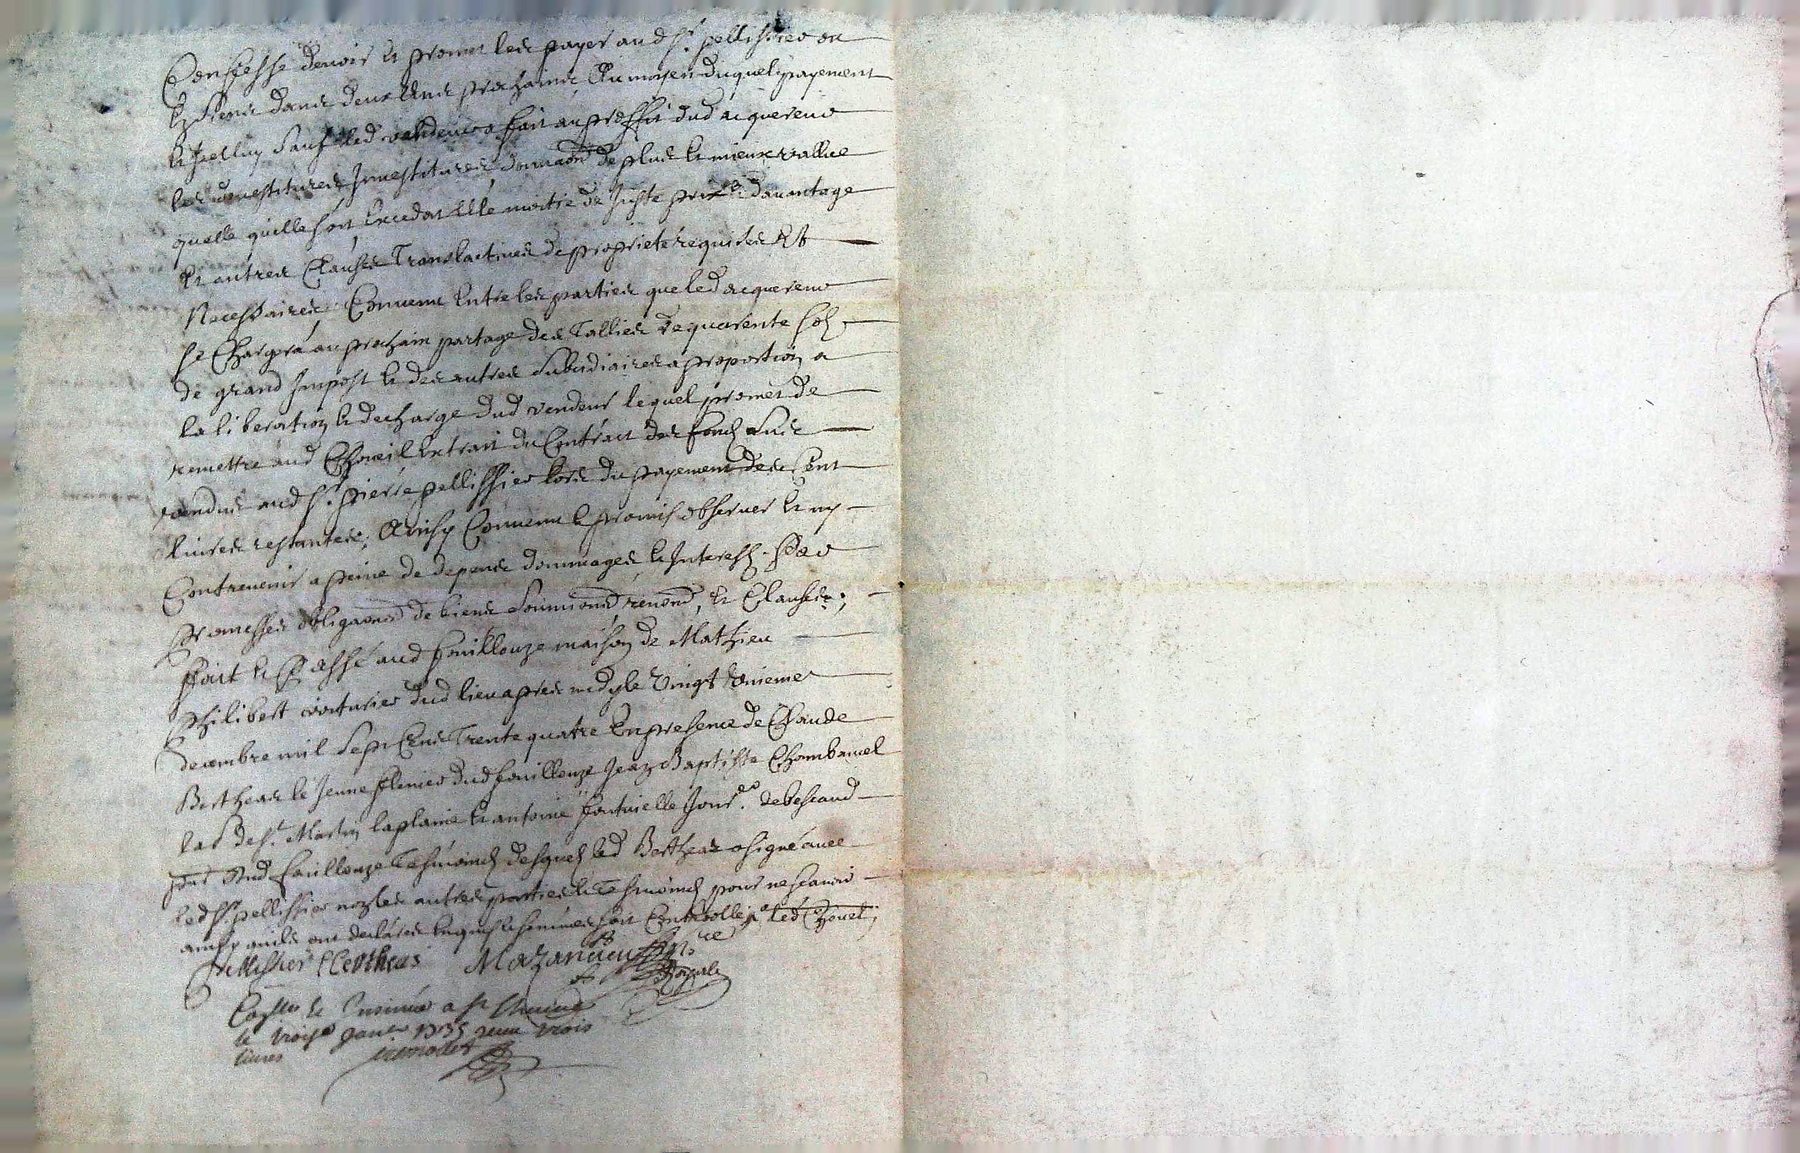 Confesse devoir et promet les payer aud sr. pellissier ou
es siens dans deux ans prochains, Au moyen duquel payement
et icelluy sauf led vandeur a fait au proffit dud acquereur
les devestitures Investitures donnaon de plus et mieux vallue
quelle quelle soit Exceda t Elle moitie de Juste prix et davantage
et autres Clauses Translactives de propriete requises Et
Necessaires. Convenu Entre les parties que led acquereur
se Chargera au prochain partage des Tallies de quarente sols
de grand Impost et des autres subsidiaires a proportion a
la liberation et decharge dud vendeur lequel promet de
remettre aud Extrait du Contract des fonds sus
vendus aud sr. pierre pellissier lors du payement des Cent
livres restantes, Ainsy Convenu et promis observer et ny
Contrevenir a peine de depens dommages et Interests. par
promesses obligaons de biens soumions renons, et Clauses;
ffait et Passé aud fouillouze maison de Mathieu
philibert voiturier dud lieu apres midy le Vingt
decembre mil sept Cens Trente quatre En presence de Claude
Bertheas le Jeune dud fouillouze Jean Baptiste
lab de st. Martin laplaine et antoine Jour.er de
par aud fouillouze Tesmoins desquels led Bertheas a signé avec
led sr. pellissier non les autres parties et Tesmoins pour ne scavoir
ainsy quils ont declaré Enquis et sommés soit Controllé
Pellissier Bertheas Mazancieu
Royale
Con.llé et Insinué a st.
le trois janvr 1735 recu trois
livres